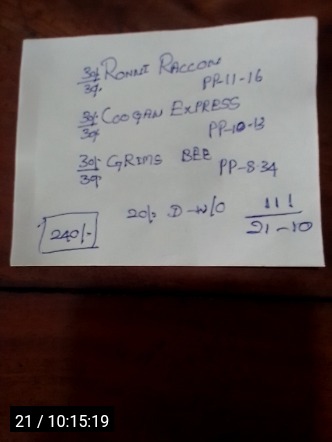 30/- RONNI RACCON
39. PP-11-16
30/- COOGAN EXPRESS
39/- PP-10-13
30/- GRIMS BEE
39 PP-8-34
240/- 20/- D-W/O 111
21-10
21 / 10:15:19